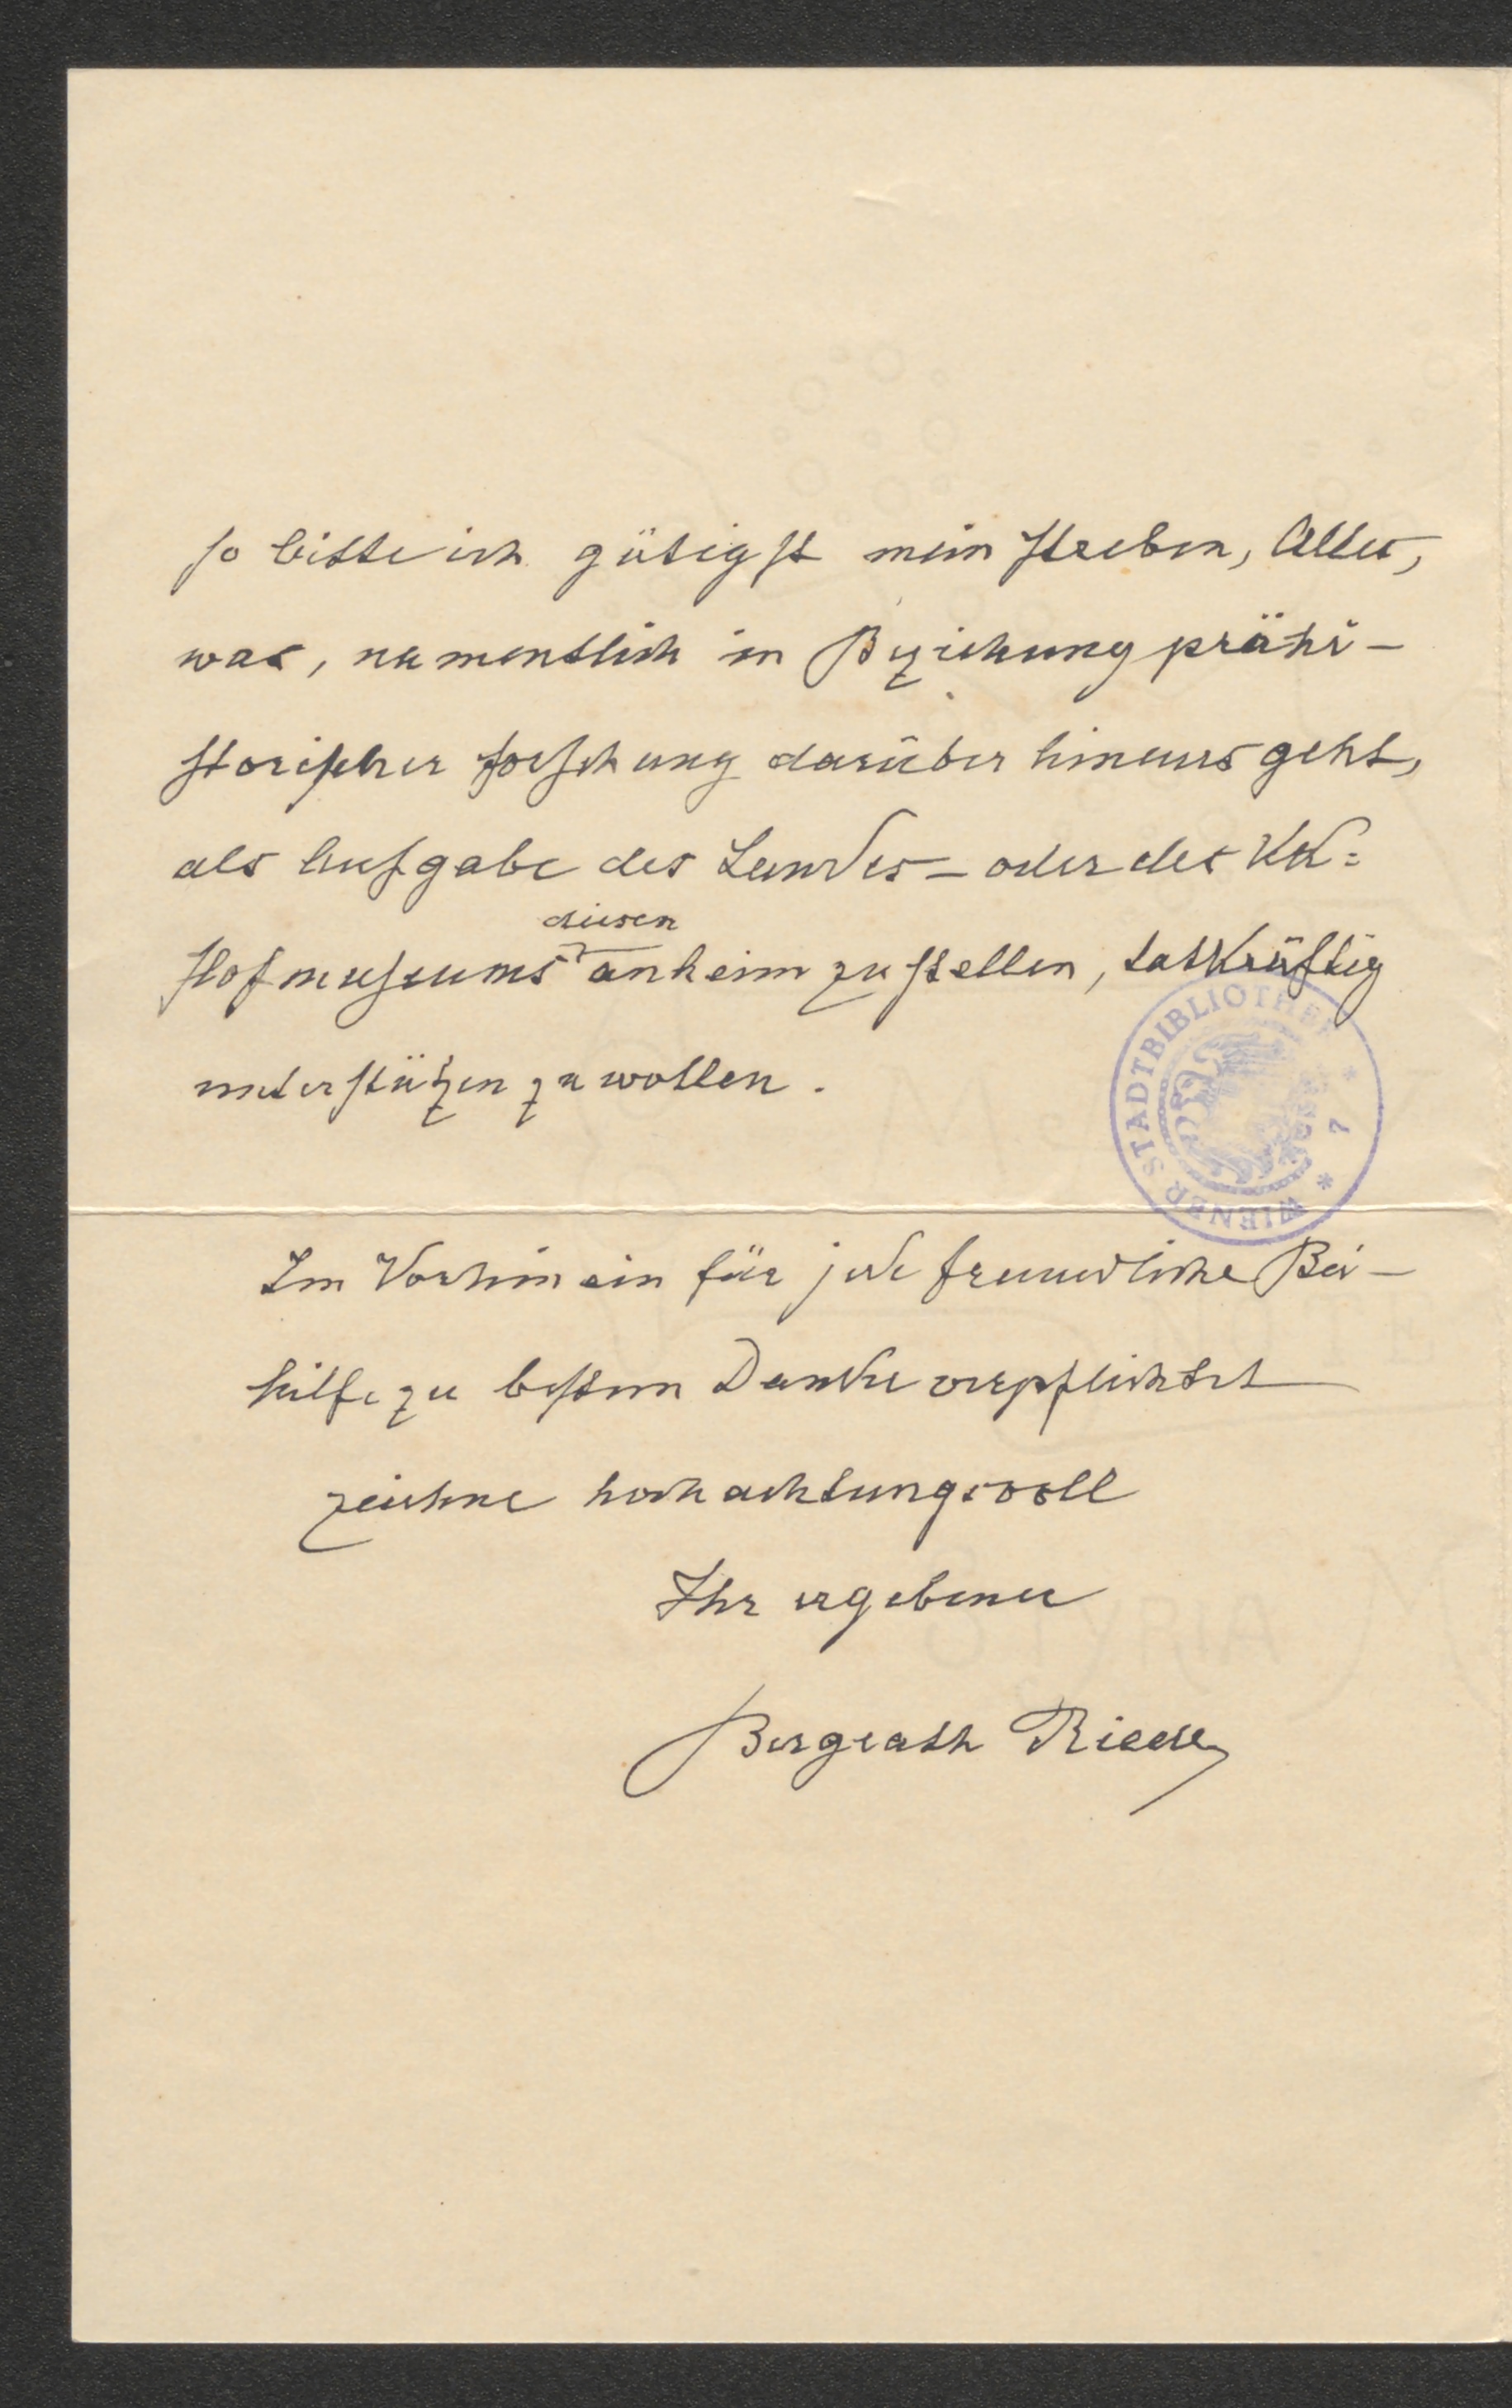 so bitte ich gütigst mein Streben, Alles,
was, namentlich in Beziehung prähi-
storischer Forschung darüber hinaus geht,
als Aufgabe des Landes- oder des KK=
diesen
Hofmuseums anheim zu stellen, tatkräftig
unterstützen zu wollen.
WIENER STADTBIBLIOTHEK * 7 *
Im Vorhinein für jede freundliche Bei-
hilfe zu bestem Danke verpflichtet
zeichne hochachtungsvoll
Ihr ergebener
Bergrath Riedl